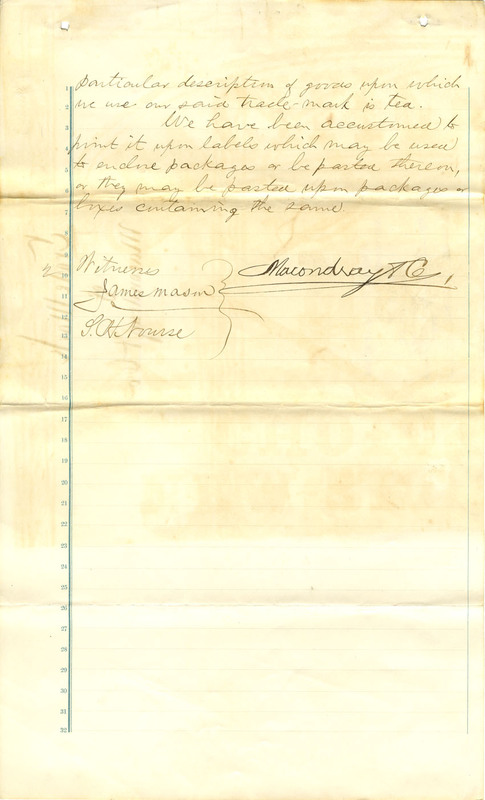 particular description of goods upon which
we use our said trade-mark is tea.
We have been accustomed to
print it upon labels which may be used
to enclose packages or be pasted thereon,
or they may be pasted upon packages or
boxes containing the same.
Witness
Macondray & Co.
James Mason
S. H. Nourse
1
2
3
4
5
6
7
8
9
10
11
12
13
14
15
16
17
18
19
20
21
22
23
24
25
26
27
28
29
30
31
32